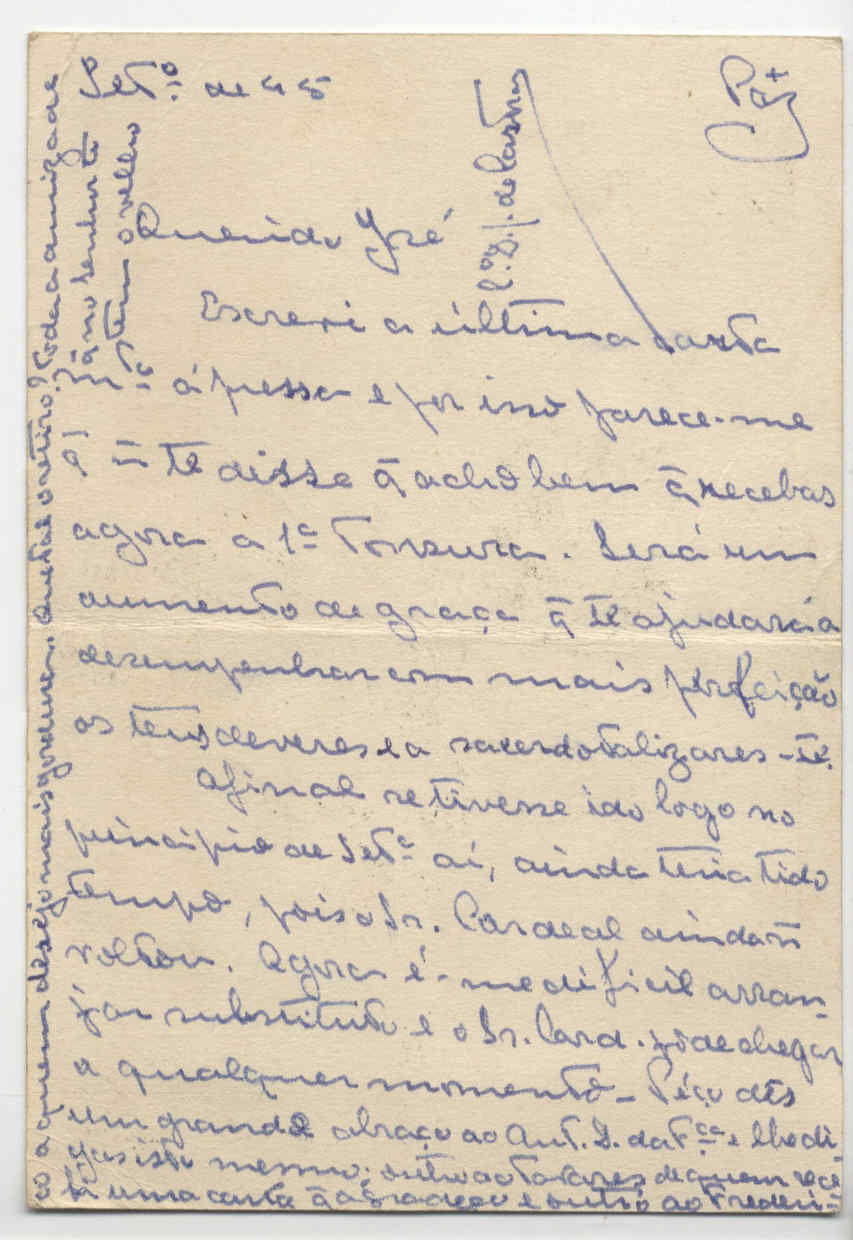 Setº de 45
Pax
Querido José
Escrevi a última carta
mtº á pressa e por isso parece-me
q̃ ñ te disse q̃ acho bem q̃ recebas
agora a 1ª Tonsura. Será um
aumento de graça q̃ te ajudará a
desempenhar com mais perfeição
os teus deveres e a sacerdotalizares-te.
Afinal se tivesse ido logo no
princípio de Setº aí, ainda teria tido
tempo, pois o Sr. Cardeal ainda ñ
voltou. Agora é-me dificil arran-
jar substituto e o Sr. Card. póde chegar
a qualquer momento – Péço dês
um grande abraço ao Ant. D. da Fca e lho di-
gas isto mesmo; outro ao Tavares de quem rece-
bi uma carta q̃ agradeço e outro ao Frederi-
co a quem desejo mais gordura. Que tal o retiro? Toda a amizade
q̃ no Senhor te
tem o velho
P. D. J. de Castro